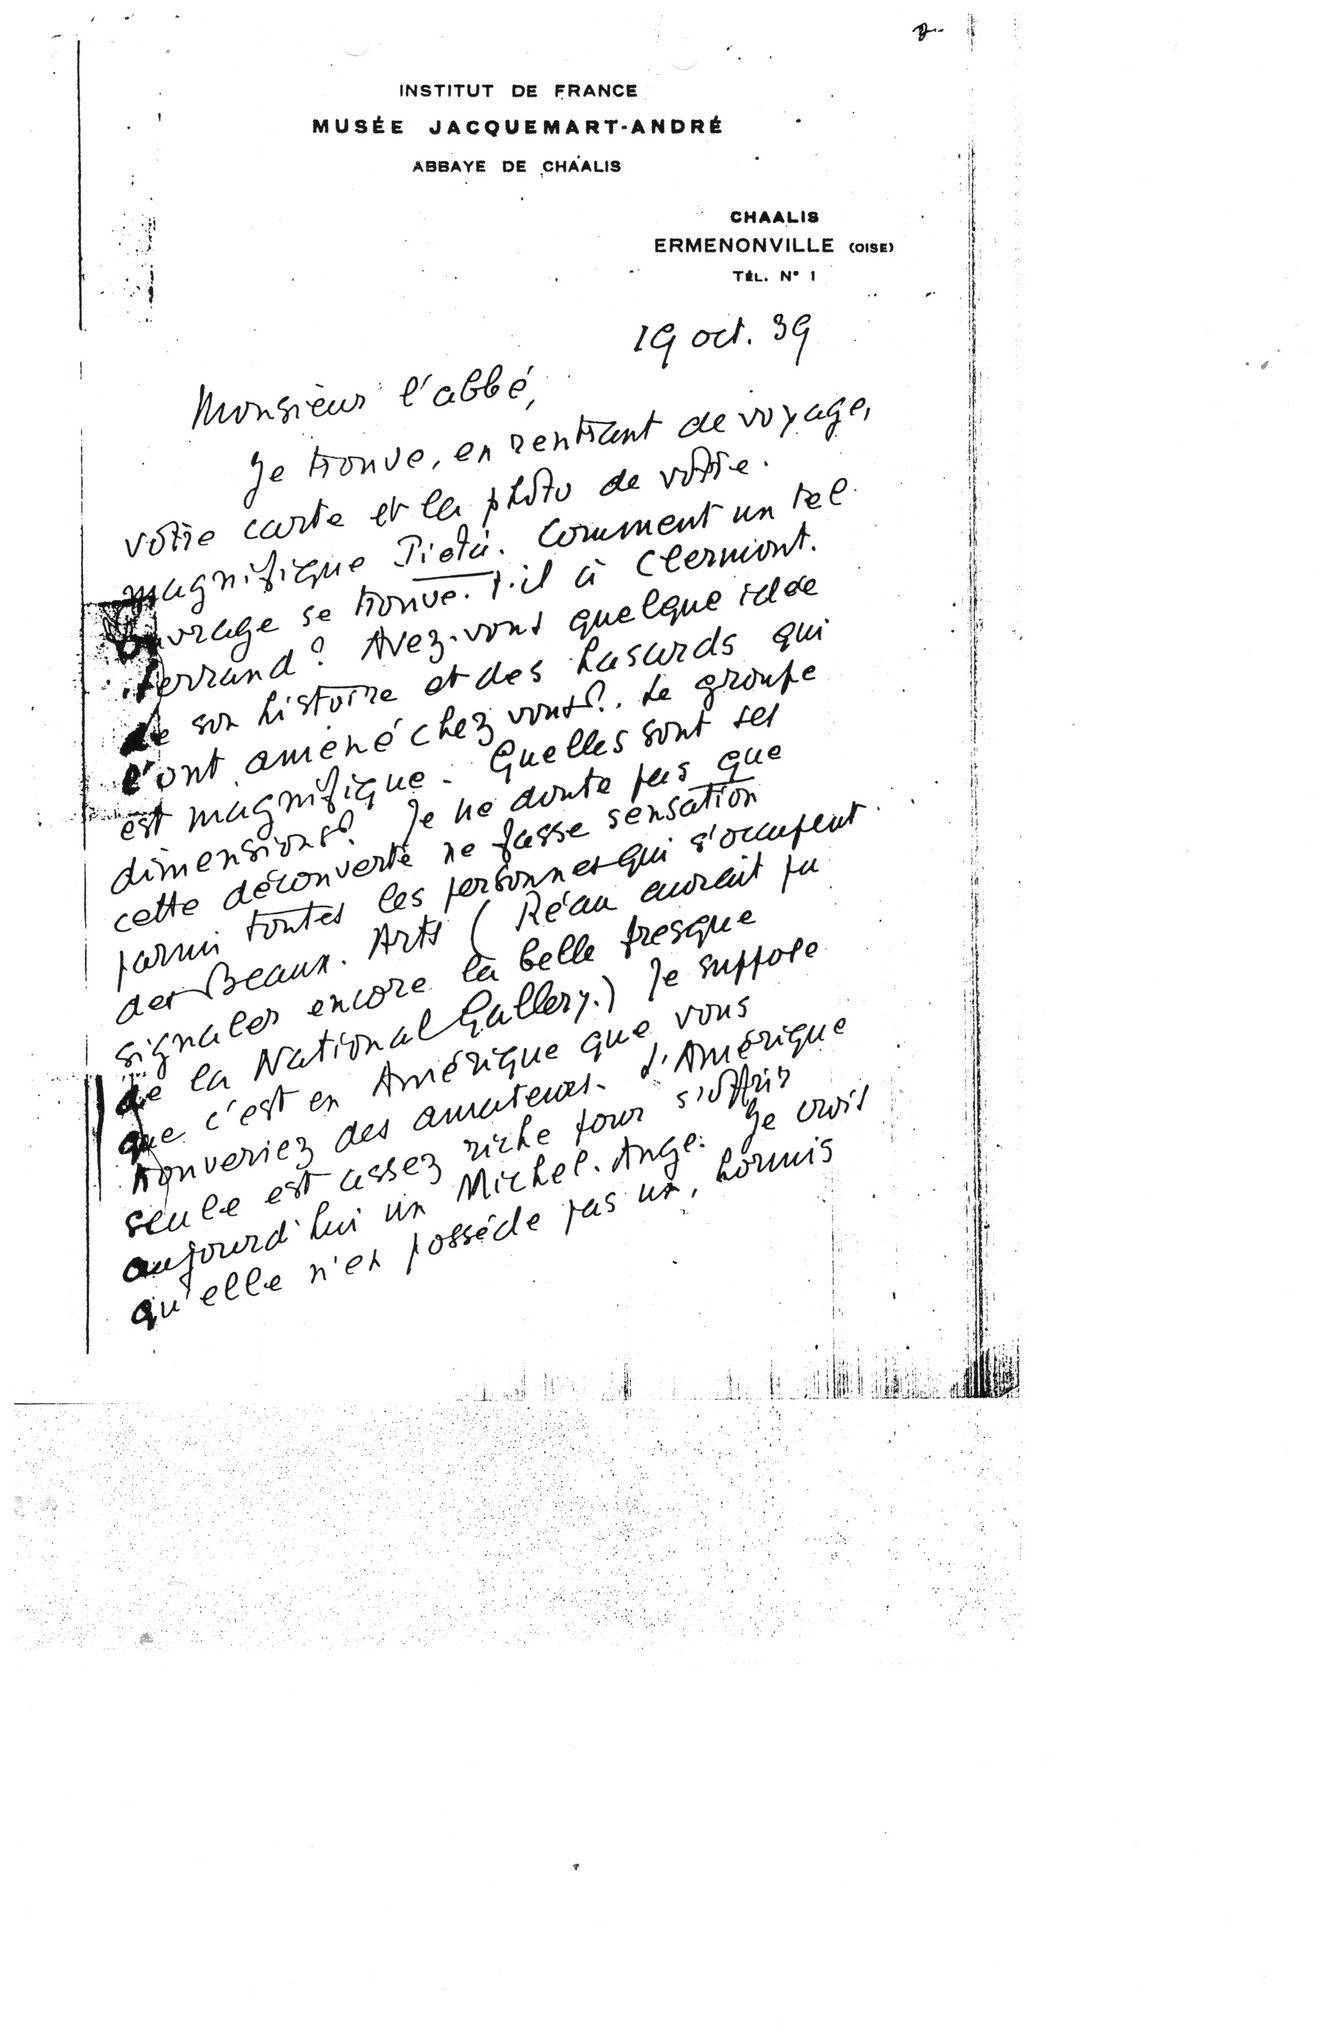 INSTITUT DE FRANCE
MUSÉE JACQUEMART-ANDRÉ
ABBAYE DE CHAALIS
CHAALIS
ERMENONVILLE (OISE)
TÉL. N° 1
19 oct. 39
Monsieur l'abbé,
Je trouve, en rentrant de voyage,
votre carte et la photo de votre
magnifique Pietà. Comment un tel
ouvrage se trouve-t-il à Clermont-
ferrand? Avez-vous quelque idée
de son histoire et des hasards qui
l'ont amené chez vous? Le groupe
est magnifique. Quelles sont ses
dimensions? Je ne doute pas que
cette découverte ne fasse sensation
parmi toutes les personnes qui s'occupent
des Beaux-Arts (Réau aurait pu
signaler encore la belle fresque
de la National Gallery.) Je suppose
que c'est en Amérique que vous
trouveriez des amateurs. L'Amérique
seule est assez riche pour s'offrir
aujourd'hui un Michel-Ange. Je crois
qu'elle n'en possède pas un, hormis